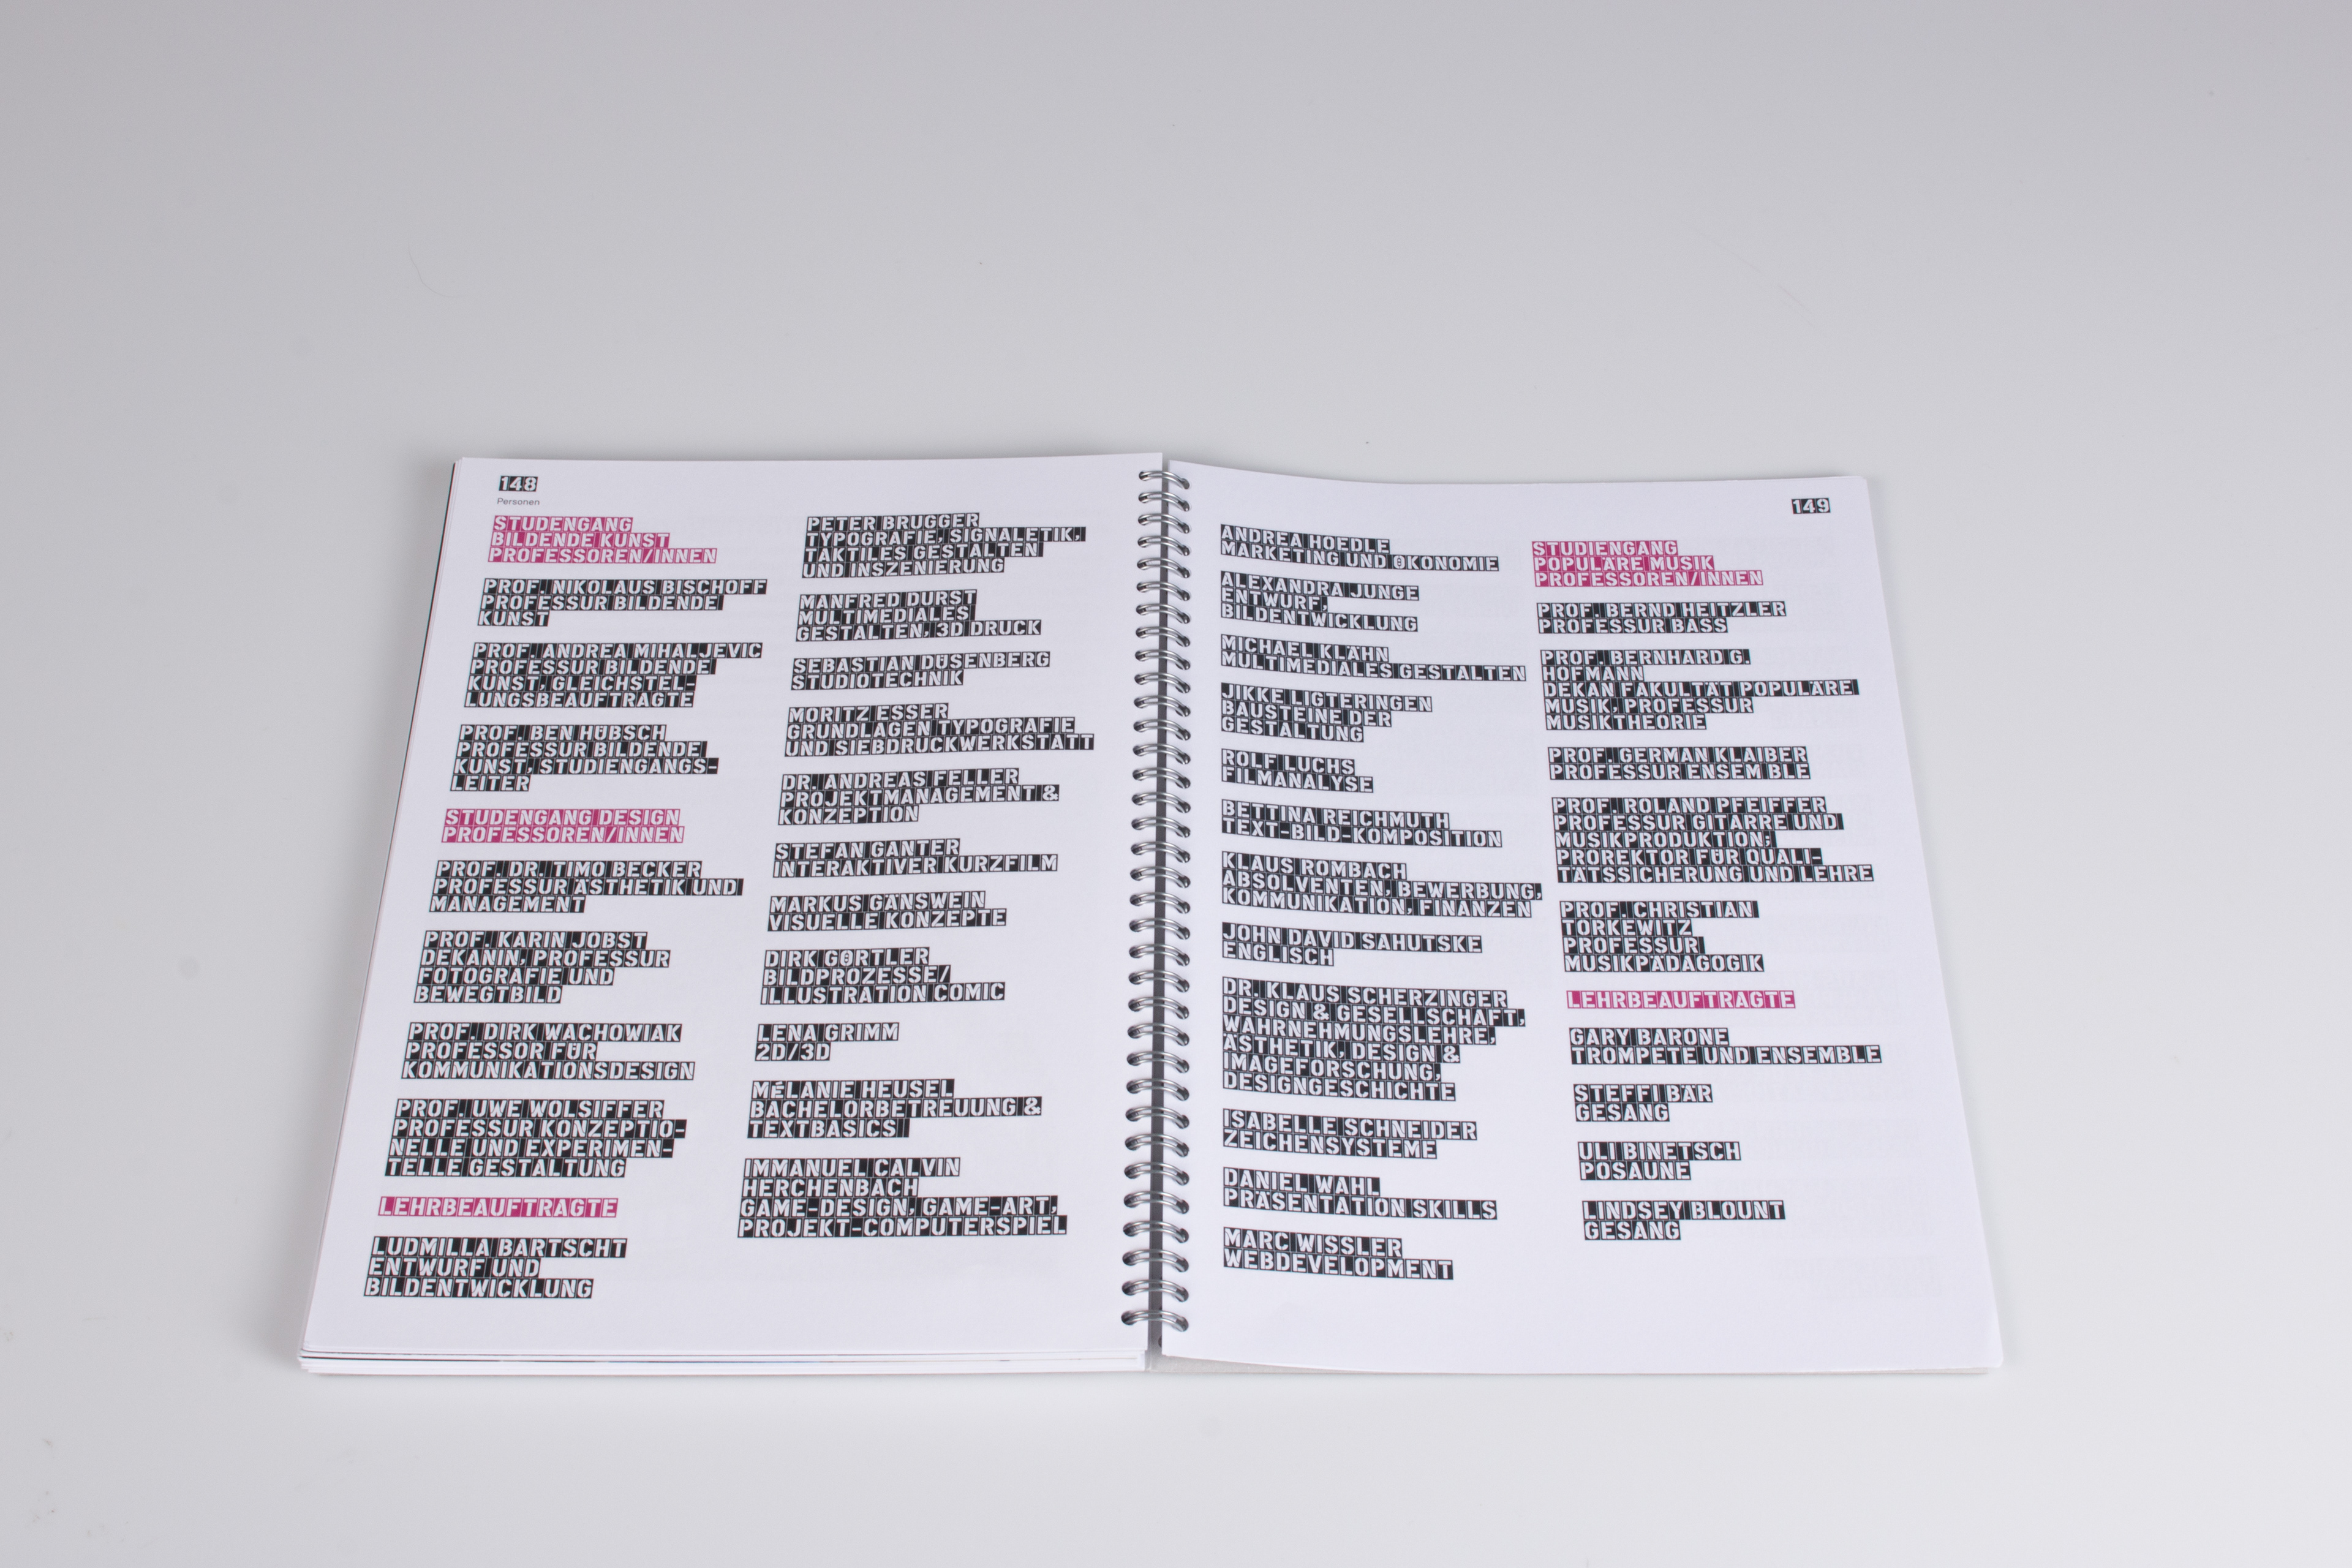 148
Personen
STUDENGANG
BILDENDE KUNST
PROFESSOREN/INNEN
PROF. NIKOLAUS BISCHOFF
PROFESSUR BILDENDE
KUNST
PROF. ANDREA MIHALJEVIC
PROFESSUR BILDENDE
KUNST, GLEICHSTEL-
LUNGSBEAUFTRAGTE
PROF. BEN HÜBSCH
PROFESSUR BILDENDE
KUNST, STUDIENGANGS-
LEITER
STUDENGANG DESIGN
PROFESSOREN/INNEN
PROF. DR. TIMO BECKER
PROFESSUR ÄSTHETIK UND
MANAGEMENT
PROF. KARIN JOBST
DEKANIN, PROFESSUR
FOTOGRAFIE UND
BEWEGTBILD
PROF. DIRK WACHOWIAK
PROFESSOR FÜR
KOMMUNIKATIONSDESIGN
PROF. UWE WOLSIFFER
PROFESSUR KONZEPTIO-
NELLE UND EXPERIMEN-
TELLE GESTALTUNG
LEHRBEAUFTRAGTE
LUDMILLA BARTSCHT
ENTWURF UND
BILDENTWICKLUNG
PETER BRUGGER
TYPOGRAFIE, SIGNALETIK,
TAKTILES GESTALTEN
UND INSZENIERUNG
MANFRED DURST
MULTIMEDIALES
GESTALTEN, 3D DRUCK
SEBASTIAN DÜSENBERG
STUDIOTECHNIK
MORITZ ESSER
GRUNDLAGEN TYPOGRAFIE
UND SIEBDRUCKWERKSTATT
DR. ANDREAS FELLER
PROJEKTMANAGEMENT &
KONZEPTION
STEFAN GANTER
INTERAKTIVER KURZFILM
MARKUS GÄNSWEIN
VISUELLE KONZEPTE
DIRK GÖRTLER
BILDPROZESSE/
ILLUSTRATION COMIC
LENA GRIMM
2D/3D
MÉLANIE HEUSEL
BACHELORBETREUUNG &
TEXTBASICS
IMMANUEL CALVIN
HERCHENBACH
GAME-DESIGN, GAME-ART,
PROJEKT-COMPUTERSPIEL
149
ANDREA HOEDLE
MARKETING UND ÖKONOMIE
ALEXANDRA JUNGE
ENTWURF,
BILDENTWICKLUNG
MICHAEL KLÄHN
MULTIMEDIALES GESTALTEN
JIKKE LIGTERINGEN
BAUSTEINE DER
GESTALTUNG
ROLF LUCHS
FILMANALYSE
BETTINA REICHMUTH
TEXT-BILD-KOMPOSITION
KLAUS ROMBACH
ABSOLVENTEN, BEWERBUNG,
KOMMUNIKATION, FINANZEN
JOHN DAVID SAHUTSKE
ENGLISCH
DR. KLAUS SCHERZINGER
DESIGN & GESELLSCHAFT,
WAHRNEHMUNGSLEHRE,
ÄSTHETIK, DESIGN &
IMAGEFORSCHUNG,
DESIGNGESCHICHTE
ISABELLE SCHNEIDER
ZEICHENSYSTEME
DANIEL WAHL
PRÄSENTATION SKILLS
MARC WISSLER
WEBDEVELOPMENT
STUDIENGANG
POPULÄRE MUSIK
PROFESSOREN/INNEN
PROF. BERND HEITZLER
PROFESSUR BASS
PROF. BERNHARD G.
HOFMANN
DEKAN FAKULTÄT POPULÄRE
MUSIK, PROFESSUR
MUSIKTHEORIE
PROF. GERMAN KLAIBER
PROFESSUR ENSEMBLE
PROF. ROLAND PFEIFFER
PROFESSUR GITARRE UND
MUSIKPRODUKTION;
PROREKTOR FÜR QUALI-
TÄTSSICHERUNG UND LEHRE
PROF. CHRISTIAN
TORKEWITZ
PROFESSUR
MUSIKPÄDAGOGIK
LEHRBEAUFTRAGTE
GARY BARONE
TROMPETE UND ENSEMBLE
STEFFI BÄR
GESANG
ULI BINETSCH
POSAUNE
LINDSEY BLOUNT
GESANG